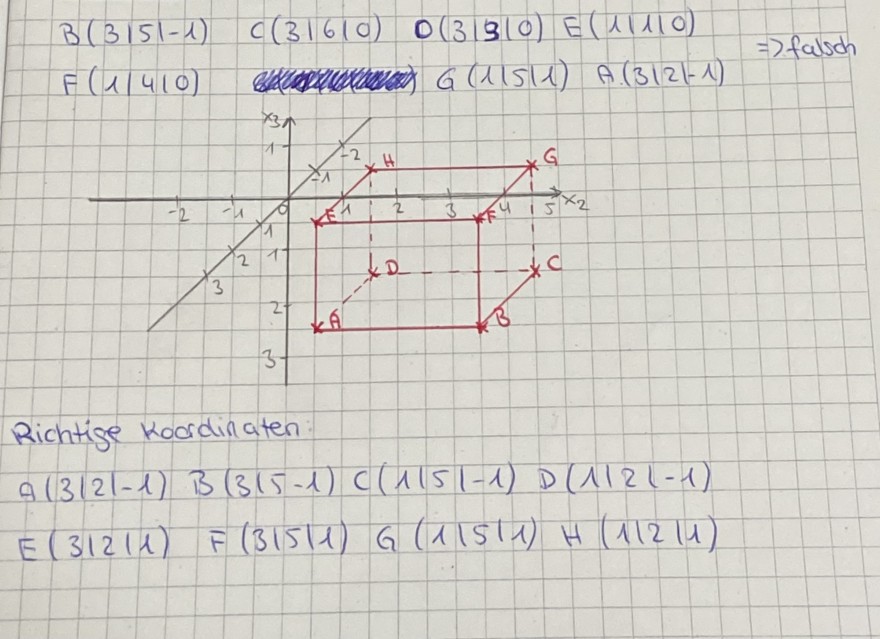 B(3|5|-1) C(3|6|0) D(3|3|0) E(1|1|0)
=> falsch
F(1|4|0) G(1|5|1) A(3|2|-1)
x3
1
-2
H
G
-1
-2 -1 0 E 1 2 3 F 4 5 x2
1
1
2
D
C
3
2
A
B
3
Richtige Koordinaten:
A(3|2|-1) B(3|5-1) C(1|5|-1) D(1|2|-1)
E(3|2|1) F(3|5|1) G(1|5|1) H(1|2|1)